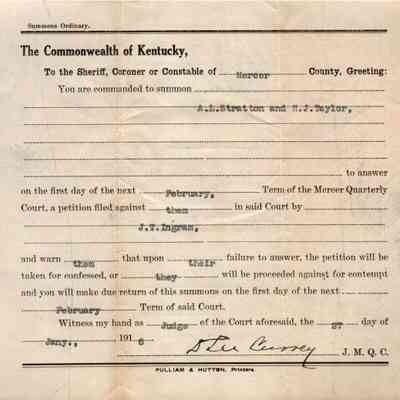 Summons Ordinary.
The Commonwealth of Kentucky,
To the Sheriff, Coroner or Constable of Mercer County, Greeting:
You are commanded to summon
A.L.Stratton and W.J.Taylor,
to answer
on the first day of the next February, Term of the Mercer Quarterly
Court, a petition filed against them in said Court by
J.T.Ingram,
and warn them that upon their failure to answer, the petition will be
taken for confessed, or they will be proceeded against for contempt
and you will make due return of this summons on the first day of the next
February Term of said Court.
Witness my hand as Judge of the Court aforesaid, the 27 day of
Jany., 1916
D Lee Currey J. M. Q. C.
PULLIAM & HUTTON, Printers.